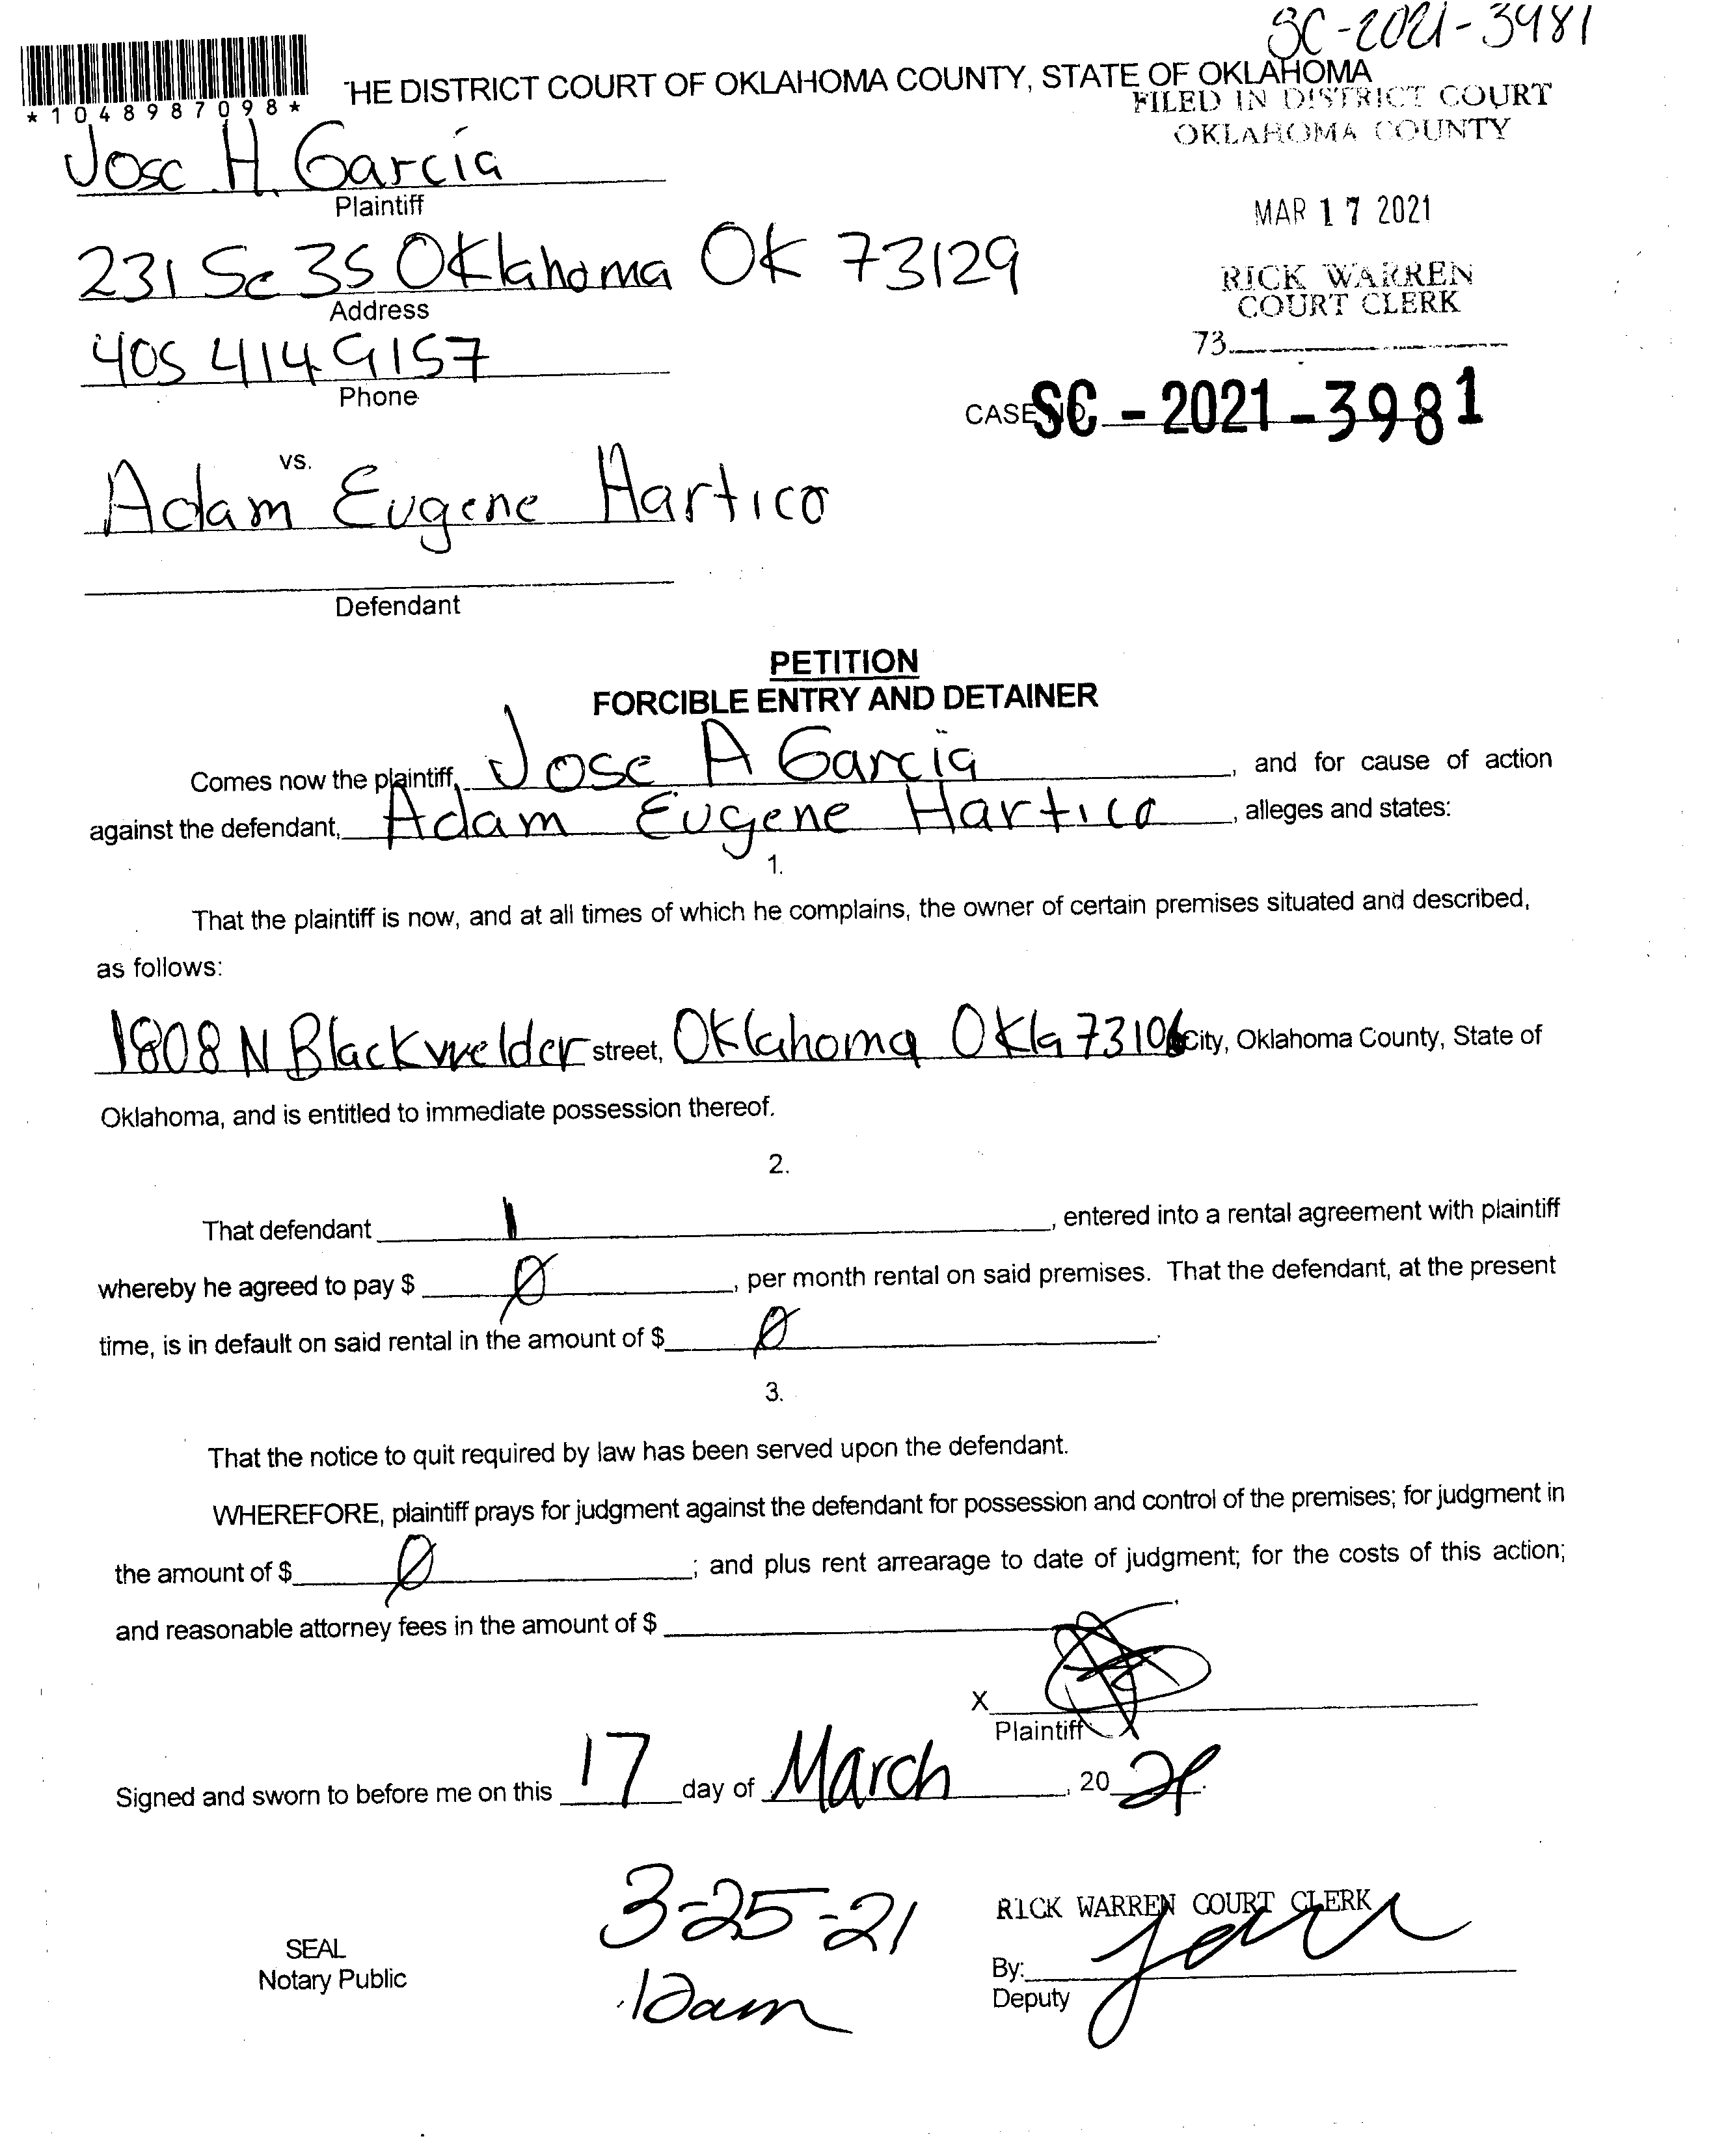 SC-2021-3981
THE DISTRICT COURT OF OKLAHOMA COUNTY, STATE OF OKLAHOMA
*1048987098*
FILED IN DISTRICT COURT
OKLAHOMA COUNTY
Jose H. Garcia
Plaintiff
MAR 17 2021
231 Se 35 Oklahoma OK 73129
Address
RICK WARREN
COURT CLERK
73
405 414 9157
Phone
CASE NO. SC - 2021 - 3981
vs.
Adam Eugene Hartico
Defendant
PETITION
FORCIBLE ENTRY AND DETAINER
Comes now the plaintiff, Jose A Garcia, and for cause of action
against the defendant, Adam Eugene Hartico, alleges and states:
1.
That the plaintiff is now, and at all times of which he complains, the owner of certain premises situated and described,
as follows:
1808 N Blackwelder street, Oklahoma Okla 73106 City, Oklahoma County, State of
Oklahoma, and is entitled to immediate possession thereof.
2.
That defendant 1, entered into a rental agreement with plaintiff
whereby he agreed to pay $ Ø, per month rental on said premises. That the defendant, at the present
time, is in default on said rental in the amount of $ Ø.
3.
That the notice to quit required by law has been served upon the defendant.
WHEREFORE, plaintiff prays for judgment against the defendant for possession and control of the premises; for judgment in
the amount of $ Ø; and plus rent arrearage to date of judgment; for the costs of this action;
and reasonable attorney fees in the amount of $
X
Plaintiff
Signed and sworn to before me on this 17 day of March, 20 21.
3-25-21
RICK WARREN COURT CLERK
SEAL
Notary Public
10am
By:
Deputy